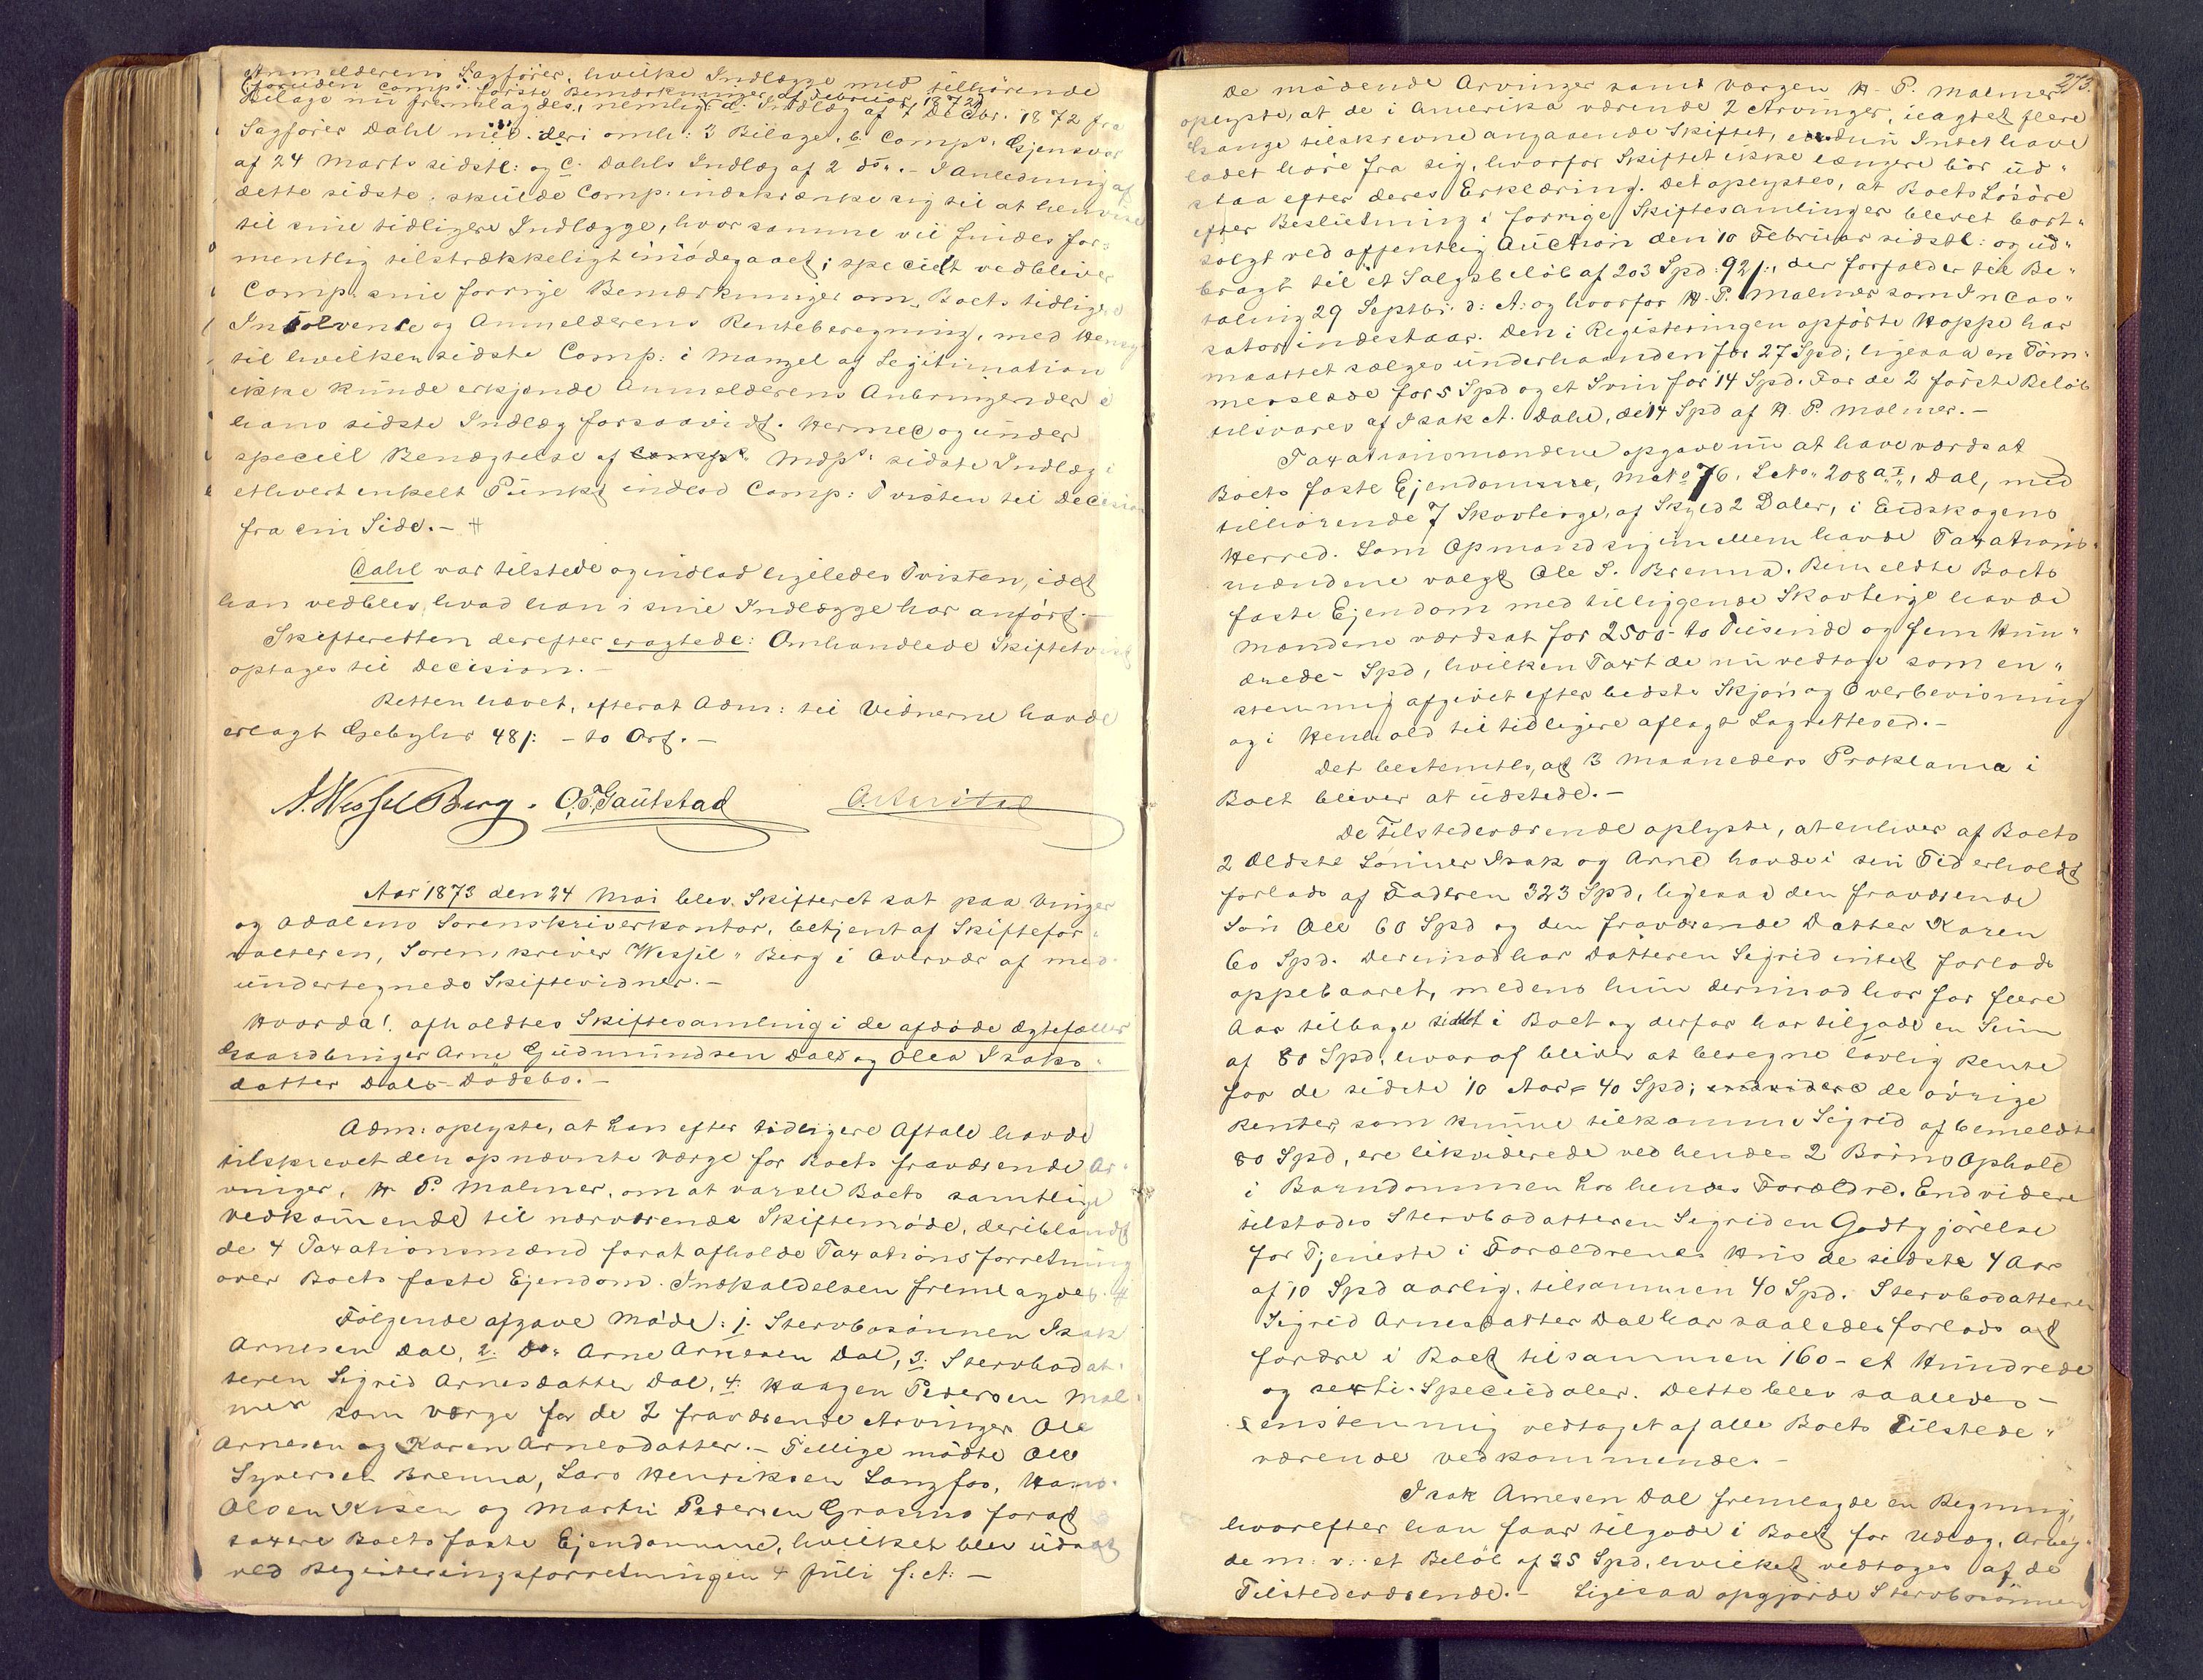 Anmelderens Sagfører, hvilke Indlægge med tilhørende
foruden Comp.s første Bemærkninger af Februar 1872,
Bilage nu fremlagdes, nemlig a. Indlæg af 7 Decbr. 1872 fra
Sagfører Dahl med deri omh: 3 Bilage, b. Comp.s Gjensvar
af 24 Marts sidstl: og c. Dahls Indlæg af 2 ds. - I Anledning af
dette sidste, skulde Comp. indskrænke sig til at henvise
til sine tidligere Indlægge, hvor samme vil findes for-
mentlig tilstrækkeligt imødegaaet; specielt vedbliver
Comp. sine forrige Bemærkninger om Boets tidligere
Insolvence og Anmelderens Renteberegning, med Hensyn
til hvilken sidste Comp: i Mangel af Legitimation
ikke kunde erkjende Anmelderens Anbringender i
hans sidste Indlæg forsaavidt. Hermed og under
speciel Benægtelse af Comp.s Mdp.s sidste Indlæg i
ethvert enkelt Punkt indlod Comp: Tvisten til Decision
fra sin Side. - #
Dahl var tilstede og indlod ligeledes Tvisten, idet
han vedblev, hvad han i sine Indlægge har anført. -
Skifteretten derefter eragtede: Omhandlede Skiftetvist
optages til Decision. -
Retten hævet, efterat Adm: til Vidnerne havde
erlagt Gebyhr 48 /: - to Ort. -
N. Wessel Berg. O. T. Gaütstad
Aar 1873 den 24 Mai blev Skifteret sat paa Vinger
og Odalens Sorenskriverkontor, betjent af Skiftefor-
valteren, Sorenskriver Wessel-Berg i Overvær af med-
undertegnede Skiftevidner. -
Hvorda! afholdtes Skiftesamling i de afdøde Ægtefæller
Gaardbruger Arne Gudmundsen Dals og Olea Isaks-
datter Dals Dødsbo. -
Adm: oplyste, at han efter tidligere Aftale havde
tilskrevet den opnævnte Værge for Boets fraværende Ar-
vinger, H. P. Malmer, om at varsle Boets samtlige
vedkommende til nærværende Skiftemøde, deriblandt
de 4 Taxationsmænd forat afholde Taxationsforretning
over Boets faste Ejendom. Indkaldelsen fremlagdes. #
Følgende afgave Møde: 1. Stervbosønnen Isak
Arnesen Dal, 2. Do. Arne Arnesen Dal, 3. Stervbodat-
teren Sigrid Arnesdatter Dal, 4. Haagen Pedersen Mal-
mer som Værge for de 2 fraværende Arvinger Ole
Arnesen og Karen Arnesdatter. - Tillige mødte Ole
Syversen Brenna, Lars Henriksen Langfos, Hans
Olsen Kisen og Martin Pedersen Grasmo forat
taxere Boets faste Ejendomme, hvilket blev udsat
ved Registeringsforretningen 4 Juli f: A: -
273.
de mødende Arvinger samt Værgen H. P. Malmer
oplyste, at de i Amerika værende 2 Arvinger, uagtet flere
Gange tilskrevne angaaende Skiftet, endnu Intet have
ladet høre fra sig, hvorfor Skiftet ikke længere bør ud-
staa efter deres Erklæring. Det oplystes, at Boets Løsøre
efter Beslutning i forrige Skiftesamlinger blevet bort-
solgt ved offentlig Auction den 10 Februar sidstl: og ud-
bragt til et Salgsbeløb af 203 Spd: 92 /:, der forfalder til Be-
taling 29 Septbr. d: A: og hvorfor H. P. Malmer som Incas-
sator indestaar. Den i Registeringen opførte Hoppe har
maattet sælges underhaanden for 27 Spd; ligesaa en Tøm-
merslæde for 5 Spd og et Svin for 14 Spd. For de 2 første Beløb
tilsvares af Isak A. Dahl, de 14 Spd af H. P. Malmer. -
Taxationsmændene opgave nu at have værdsat
Boets faste Ejendomme, Mat No 76, L No. 208 a I, Dal, med
tilhørende 7 Skovteige, af Skyld 2 Daler, i Eidskogens
Herred. Som Opmand sig imellem havde Taxations-
mændene valgt Ole S. Brenna. Bemeldte Boets
faste Ejendom med tilliggende Skovteige havde
Mændene værdsat for 2500 - to Tusinde og fem Hun-
drede - Spd, hvilken Taxt de nu vedtoge som en-
stemmig afgivet efter bedste Skjøn og Overbevisning
og i Henhold til tidligere aflagt Lagrettesed. -
Det bestemtes, at 3 Maaneders Proklama i
Boet bliver at udstede. -
De Tilstedeværende oplyste, at enhver af Boets
2 Ældste Sønner Isak og Arne havde i sin Tid erholdt
forlods af Faderen 323 Spd, ligesaa den fraværende
Søn Ole 60 Spd og den fraværende Datter Karen
60 Spd. Derimod har Datteren Sigrid intet forlods
oppebaaret, medens hun derimod har for flere
Aar tilbage siddet i Boet og derfor har tilgode en Sum
af 80 Spd, hvoraf bliver at beregne lovlig Rente
for de sidste 10 Aar = 40 Spd; de øvrige
Renter som kunne tilkomme Sigrid af bemeldte
80 Spd, ere likviderede ved hendes 2 Børns Ophold
i Barndommen hos hendes Forældre. Endvidere
tilstodes Stervbodatteren Sigrid en Godtgjørelse
for Tjeneste i Forældrenes Hus de sidste 4 Aar
af 10 Spd aarlig, tilsammen 40 Spd. Stervbodatteren
Sigrid Arnesdatter Dal har saaledes forlods at
fordre i Boet tilsammen 160 - et Hundrede
og sexti - Speciedaler. Dette blev saaledes
enstemmig vedtaget af alle Boets Tilstede-
værende vedkommende. -
Isak Arnesen Dal fremlagde en Regning,
hvorefter han faar tilgode i Boet for Udlæg, Arbej-
de m: v: et Beløb af 25 Spd, hvilket vedtoges af de
Tilstedeværende. - Ligesaa opgjorde Stervbosønnen